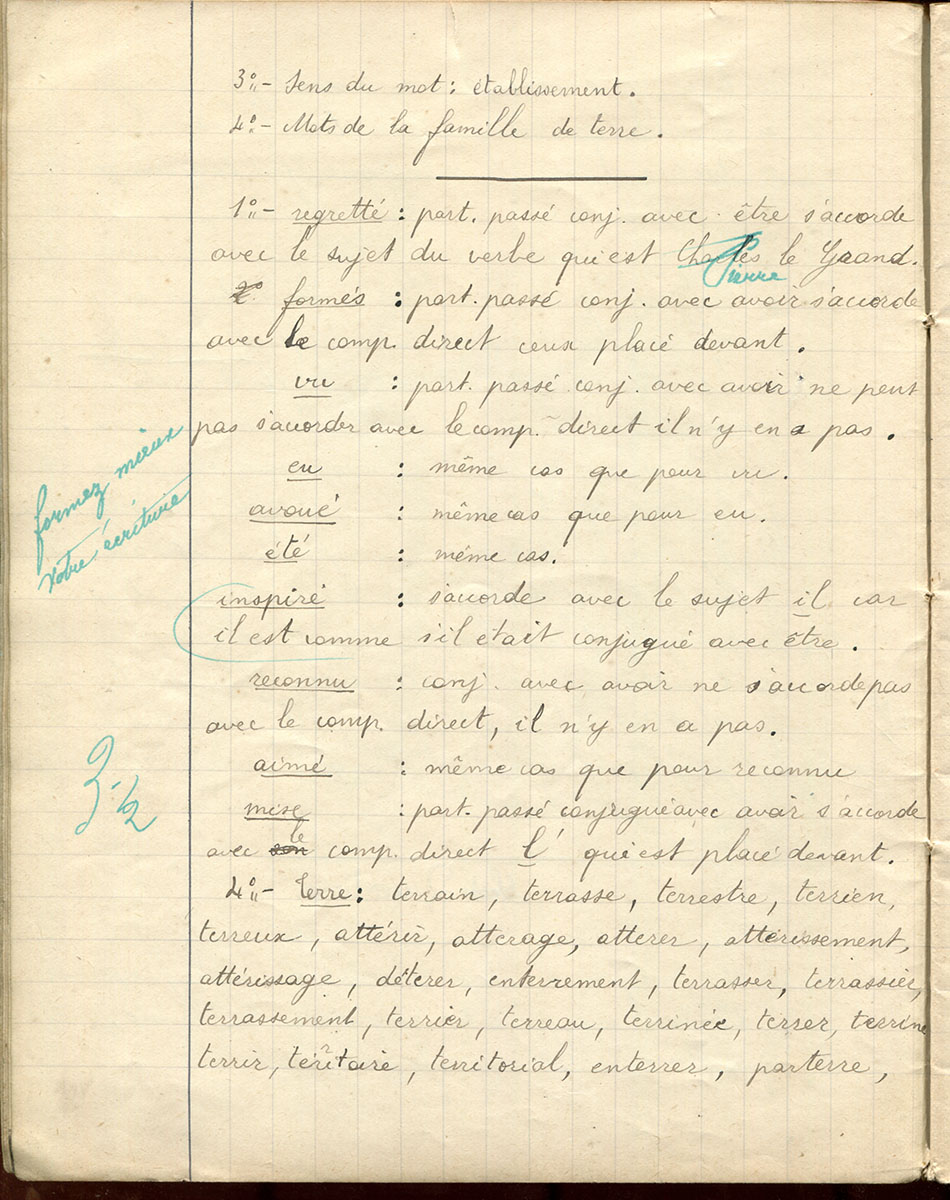 3°.- Sens du mot : établissement.
4°.- Mots de la famille de terre.
1°.- regretté : part. passé conj. avec être s'accorde
avec le sujet du verbe qui est Charles le Grand.
Pierre
formés : part. passé conj. avec avoir s'accorde
avec le comp. direct ceux placé devant.
vu : part. passé conj. avec avoir ne peut
pas s'accorder avec le comp. direct il n'y en a pas.
eu : même cas que pour vu.
formez mieux
votre écriture
avoué : même cas que pour eu.
été : même cas.
inspiré : s'accorde avec le sujet il car
il est comme s'il était conjugué avec être.
reconnu : conj. avec avoir ne s'accorde pas
avec le comp. direct, il n'y en a pas.
aimé : même cas que pour reconnu
3 1/2
mise : part. passé conjugué avec avoir s'accorde
avec son le comp. direct l' qui est placé devant.
4°.- Terre : terrain, terrasse, terrestre, terrien,
terreux, attérir, atterage, atterer, attérissement,
attérissage, déterer, enterrement, terrasser, terrassier,
terrassement, terrier, terreau, terrinée, terrer, terrine
terrir, territoire, territorial, enterrer, parterre,